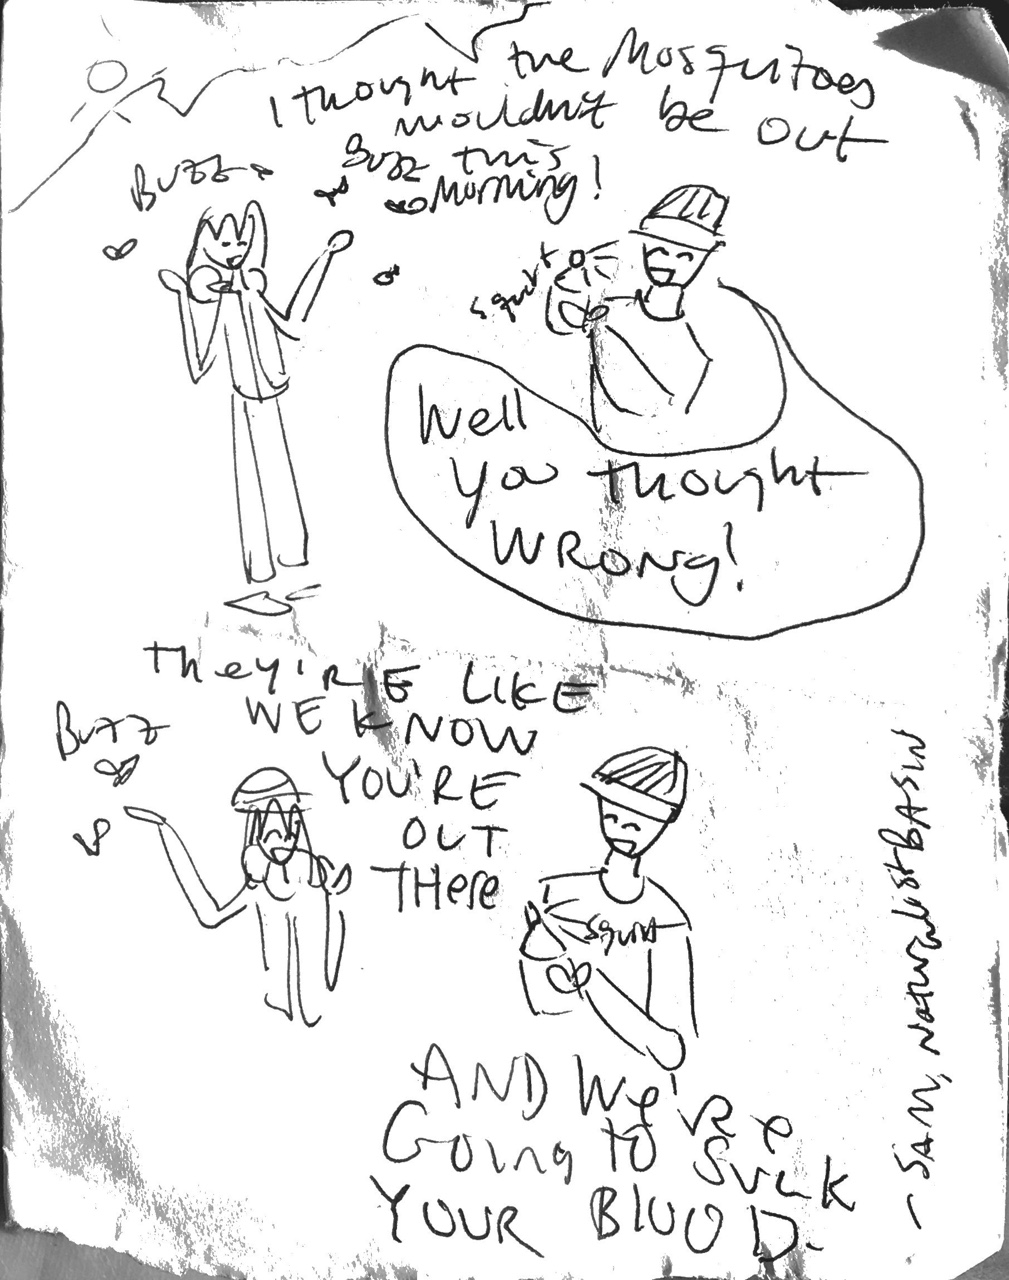 I thought the Mosquitoes
wouldn't be out
this
morning!
Buzz
Buzz
squirt
Well
you thought
WRONG!
They'RE LIKE
WE KNOW
YOU'RE
OUT
THere
Buzz
squirt
AND We're
Going to SUCK
YOUR BLOOD.
— SAM, Naturalist BASIN